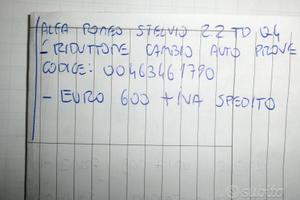 ALFA ROMEO STELVIO 2.2 TD Q4
- RIDUTTORE CAMBIO AUTO PROVE
CODICE: 00463461790
- EURO 600 + IVA SPEDITO
subito